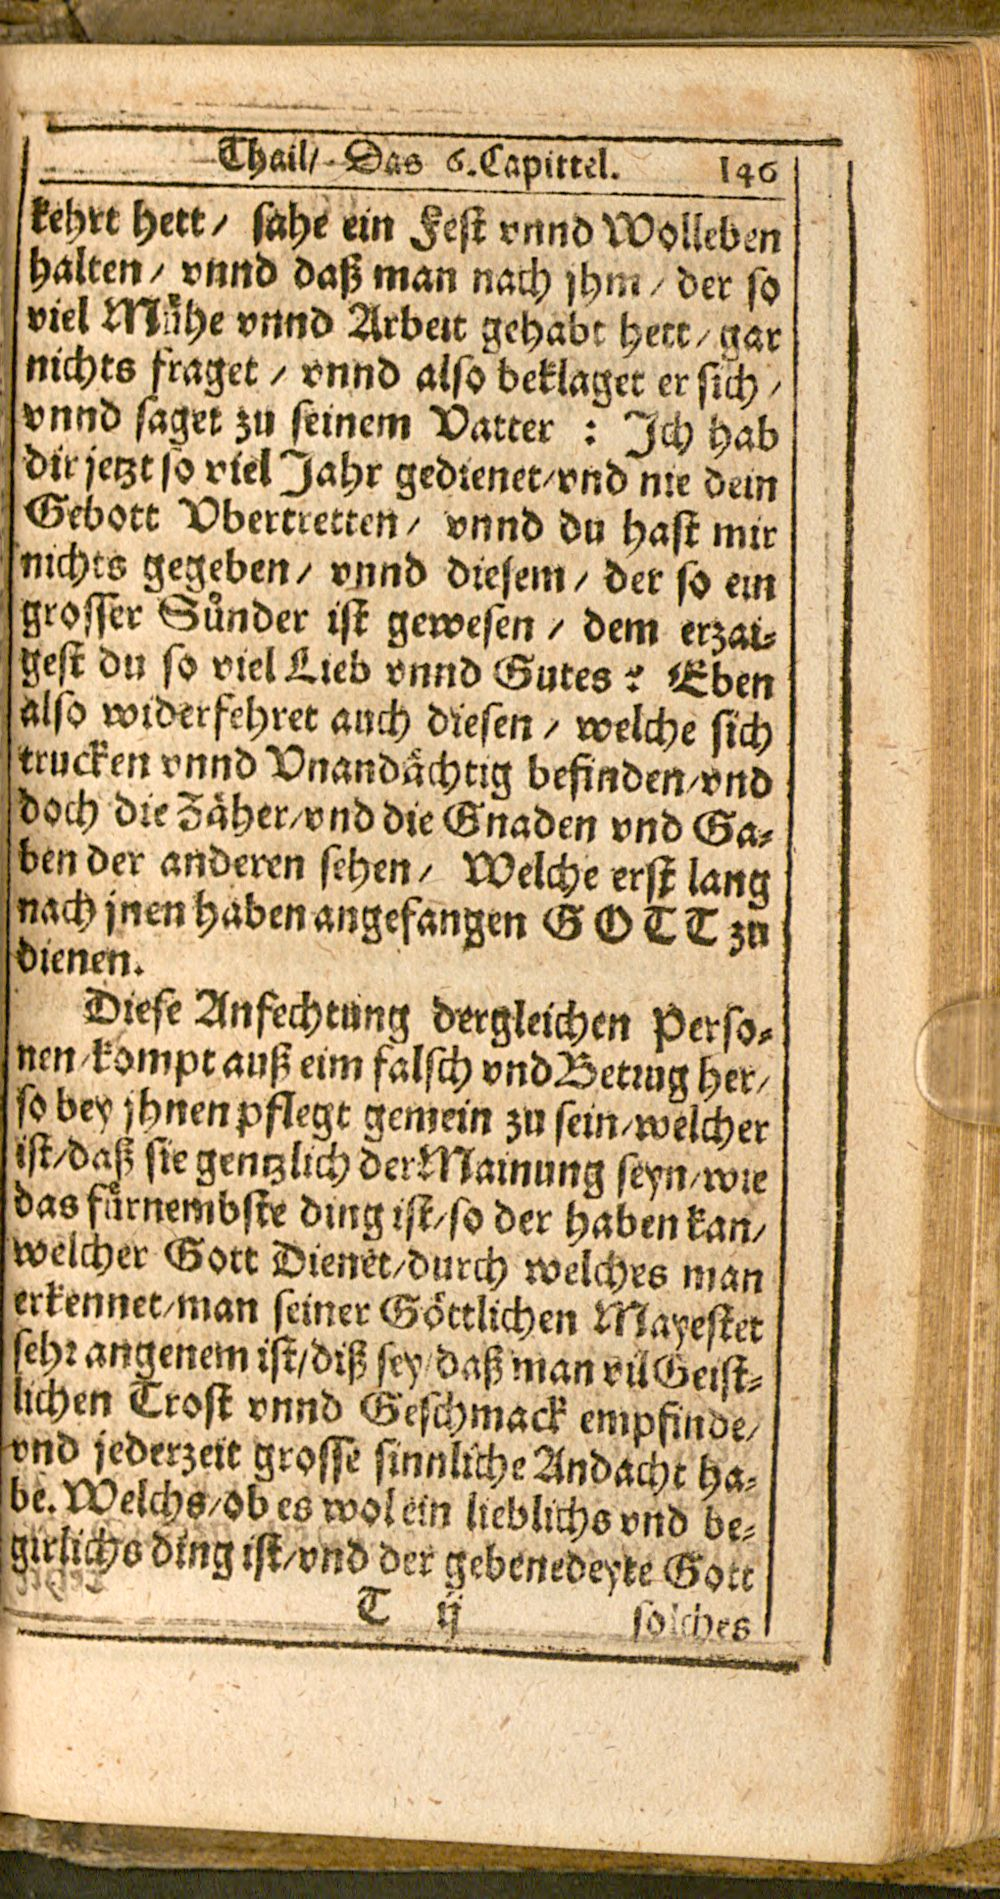 Thail/ Das 6. Capittel. 146
kehrt hett/ sahe ein Fest vnnd Wolleben
halten/ vnnd daß man nach jhm/ der so
viel Mühe vnnd Arbeit gehabt hett/ gar
nichts fraget/ vnnd also beklaget er sich/
vnnd saget zu seinem Vatter : Ich hab
dir jetzt so viel Jahr gedienet/ vnd nie dein
Gebott Vbertretten/ vnnd du hast mir
nichts gegeben/ vnnd diesem/ der so ein
grosser Sünder ist gewesen/ dem erzai-
gest du so viel Lieb vnnd Gutes? Eben
also widerfehret auch diesen/ welche sich
trucken vnnd Vnandächtig befinden/ vnd
doch die Zäher/ vnd die Gnaden vnd Ga-
ben der anderen sehen/ Welche erst lang
nach jnen haben angefangen GOTT zu
dienen.
Diese Anfechtung dergleichen Perso-
nen/ kompt auß eim falsch vnd Betrug her/
so bey jhnen pflegt gemein zu sein/ welcher
ist/ daß sie gentzlich der Mainung seyn/ wie
das fürnembste ding ist/ so der haben kan/
welcher Gott Dienet/ durch welches man
erkennet/ man seiner Göttlichen Mayestet
sehr angenem ist/ diß sey/ daß man vil Geist-
lichen Trost vnnd Geschmack empfinde/
vnd jederzeit grosse sinnliche Andacht ha-
be. Welchs/ ob es wol ein lieblichs vnd be-
girlichs ding ist/ vnd der gebenedeyte Gott
T ij solches